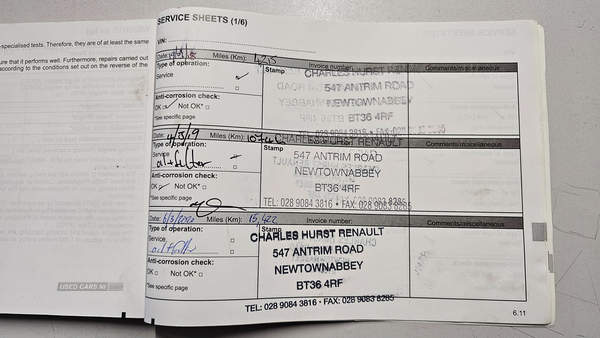 -specialised tests. Therefore, they are of at least the same
ure that it performs well. Furthermore, repairs carried out
according to the conditions set out on the reverse of the
USED CARS NI
SERVICE SHEETS (1/6)
VIN:
Date: Miles (Km): 4215 Invoice number: Comments/miscellaneous
Type of operation:
Service
Stamp
CHARLES HURST RENAULT
547 ANTRIM ROAD
NEWTOWNABBEY
BT36 4RF
Anti-corrosion check:
OK Not OK*
*See specific page
Date: 4/3/19 Miles (Km):
CHARLES HURST RENAULT
Type of operation:
Service
oil + filter
Stamp
547 ANTRIM ROAD
NEWTOWNABBEY
BT36 4RF
TEL: 028 9084 3816 • FAX: 028 9083 8285
Anti-corrosion check:
OK Not OK*
*See specific page
Date: 6/3/2020 Miles (Km): 15,422 Invoice number: Comments/miscellaneous
Type of operation:
Service
oil + filter
Stamp
CHARLES HURST RENAULT
547 ANTRIM ROAD
NEWTOWNABBEY
BT36 4RF
TEL: 028 9084 3816 • FAX: 028 9083 8285
Anti-corrosion check:
OK Not OK*
*See specific page
6.11